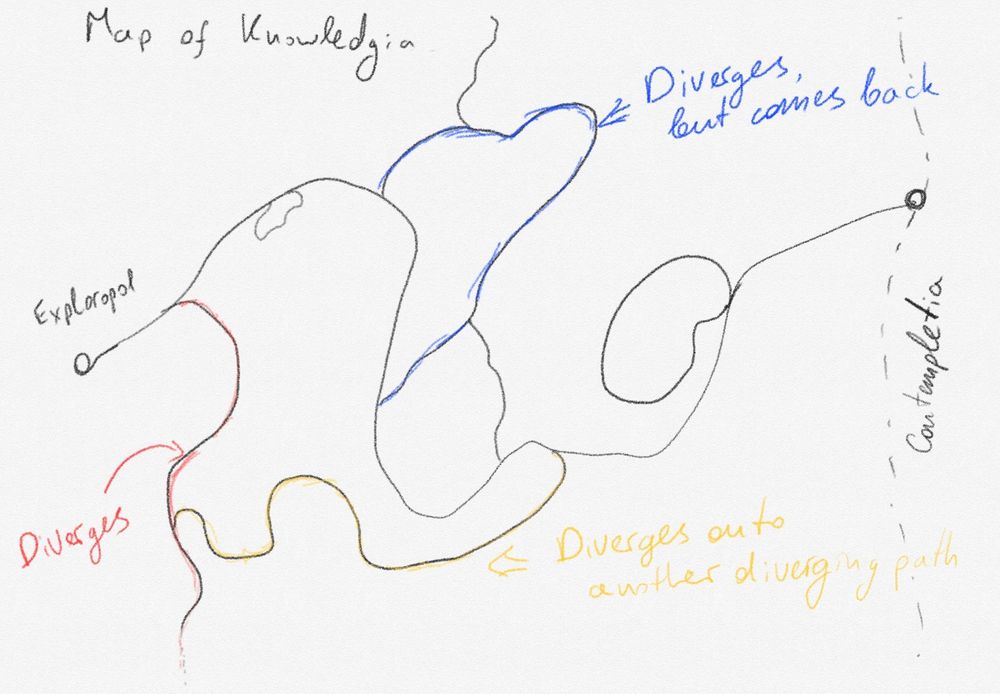 Map of Knowledgia
Diverges,
but comes back
Exploropol
Contempletia
Diverges
Diverges onto
another diverging path